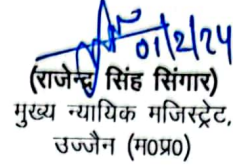 01/2/24
(राजेन्द्र सिंह सिंगार)
मुख्य न्यायिक मजिस्ट्रेट,
उज्जैन (म०प्र०)